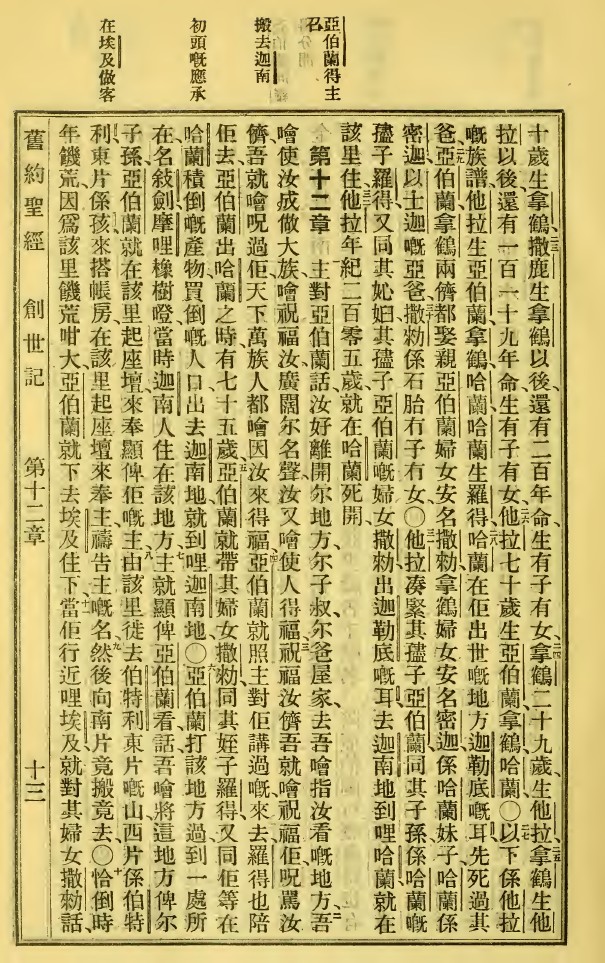 亞伯蘭得主召
搬去迦南
初頭嘅應承
在埃及做客
十歲生拿鶴、二三撒鹿生拿鶴以後、還有二百年命、生有子有女、二四拿鶴二十九歲、生他拉、二五拿鶴生他
拉以後、還有一百一十九年命、生有子有女、二六他拉七十歲生亞伯蘭、拿鶴、哈蘭、〇二七以下係他拉
嘅族譜、他拉生亞伯蘭、拿鶴、哈蘭、哈蘭生羅得、二八哈蘭在佢出世嘅地方、迦勒底嘅耳、先死過其
爸、二九亞伯蘭拿鶴兩儕都娶親、亞伯蘭婦女安名撒勑、拿鶴婦女安名密迦、係哈蘭妹子、哈蘭係
密迦以士迦嘅亞爸、三十撒勑係石胎、冇子冇女、〇三一他拉凑緊其孻子亞伯蘭、同其子孫係哈蘭嘅
孻子羅得、又同其亞伯蘭嘅婦女撒勑、出迦勒底嘅耳、去迦南地、到哩哈蘭、就在
該里住、三二他拉年紀二百零五歲、就在哈蘭死開、
第十二章 一主對亞伯蘭話、汝好離開尔地方、尔子叔、尔爸屋家、去吾噲指汝看嘅地方、二吾
噲使汝成做大族、噲祝福汝、廣闊尔名聲、汝又噲使人得福、三祝福汝儕、吾就噲祝福佢、呪罵汝
儕、吾就噲呪過佢、天下萬族人都噲因汝來得福、四亞伯蘭就照主對佢講過嘅來去、羅得也陪
佢去、亞伯蘭出哈蘭之時、有七十五歲、五亞伯蘭就帶其婦女撒勑、同其姪子羅得、又同佢等在
哈蘭積倒嘅產物、買倒嘅人口、出去迦南地、就到哩迦南地、〇六亞伯蘭打該地方過、到一處所
在、名敍劍、摩哩橡樹嶝、當時迦南人住在該地方、七主就顯俾亞伯蘭看、話、吾噲將這地方俾尔
子孫、亞伯蘭就在該里起座壇、來奉顯俾佢嘅主、八由該里徙去伯特利東片嘅山、西片係伯特
利、東片係孩、來搭帳房、在該里起座壇來奉主、禱告主嘅名、九然後向南片竟搬竟去、〇十恰倒時
年饑荒、因爲該里饑荒咁大、亞伯蘭就下去埃及住下、十一當佢行近哩埃及、就對其婦女撒勑話、
舊約聖經 創世記 第十二章 十三